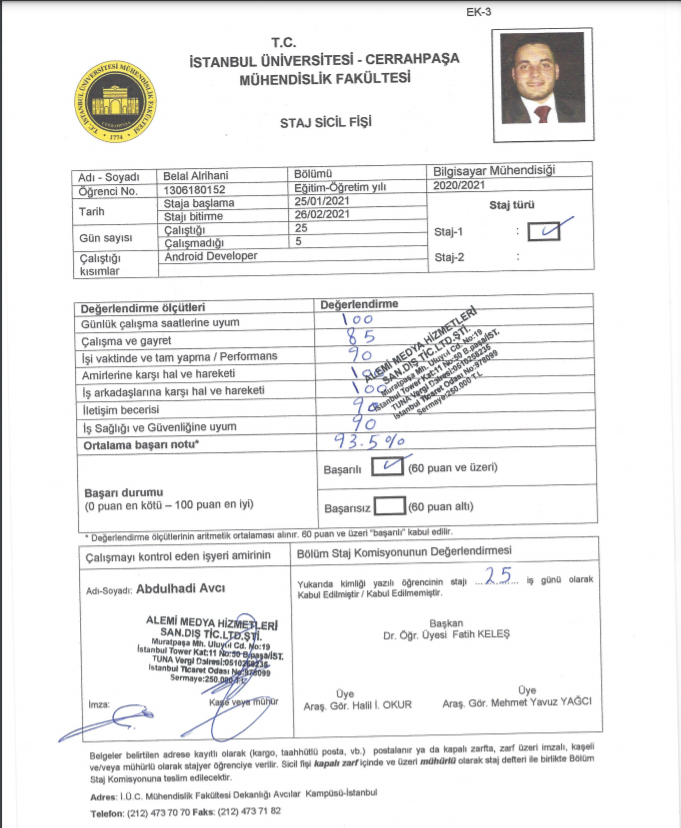 EK-3
T.C.
İSTANBUL ÜNİVERSİTESİ - CERRAHPAŞA
MÜHENDİSLİK FAKÜLTESİ
STAJ SİCİL FİŞİ
T.C. İSTANBUL ÜNİVERSİTESİ MÜHENDİSLİK FAKÜLTESİ
CERRAHPAŞA
1774
Adı - Soyadı Belal Alrihani Bölümü Bilgisayar Mühendisiği
Öğrenci No. 1306180152 Eğitim-Öğretim yılı 2020/2021
Tarih Staja başlama 25/01/2021 Staj türü
Stajı bitirme 26/02/2021
Gün sayısı Çalıştığı 25 Staj-1 :
Çalışmadığı 5
Çalıştığı kısımlar Android Developer Staj-2 :
Değerlendirme ölçütleri Değerlendirme
Günlük çalışma saatlerine uyum 100
Çalışma ve gayret 85
İşi vaktinde ve tam yapma / Performans 90
Amirlerine karşı hal ve hareketi
İş arkadaşlarına karşı hal ve hareketi 100
İletişim becerisi 90
İş Sağlığı ve Güvenliğine uyum 90
Ortalama başarı notu* 93.5%
ALEMİ MEDYA HİZMETLERİ
SAN.DIŞ TİC.LTD.ŞTİ.
Muratpaşa Mh. Uluyol Cd. No:19
İstanbul Tower Kat:11 No:50 B.paşa/İST.
TUNA Vergi Dairesi:0510258235
İstanbul Ticaret Odası No:978099
Sermaye:250.000 T.L
Başarı durumu
(0 puan en kötü – 100 puan en iyi)
Başarılı (60 puan ve üzeri)
Başarısız (60 puan altı)
* Değerlendirme ölçütlerinin aritmetik ortalaması alınır. 60 puan ve üzeri "başarılı" kabul edilir.
Çalışmayı kontrol eden işyeri amirinin
Adı-Soyadı: Abdulhadi Avcı
ALEMİ MEDYA HİZMETLERİ
SAN.DIŞ TİC.LTD.ŞTİ.
Muratpaşa Mh. Uluyol Cd. No:19
İstanbul Tower Kat:11 No:50 B.paşa/İST.
TUNA Vergi Dairesi:0510258235
İstanbul Ticaret Odası No:978099
Sermaye:250.000 T.L
İmza: Kaşe veya mühür
Bölüm Staj Komisyonunun Değerlendirmesi
Yukarıda kimliği yazılı öğrencinin stajı ...25... iş günü olarak
Kabul Edilmiştir / Kabul Edilmemiştir.
Başkan
Dr. Öğr. Üyesi Fatih KELEŞ
Üye Üye
Araş. Gör. Halil İ. OKUR Araş. Gör. Mehmet Yavuz YAĞCI
Belgeler belirtilen adrese kayıtlı olarak (kargo, taahhütlü posta, vb.) postalanır ya da kapalı zarfta, zarf üzeri imzalı, kaşeli
ve/veya mühürlü olarak stajyer öğrenciye verilir. Sicil fişi kapalı zarf içinde ve üzeri mühürlü olarak staj defteri ile birlikte Bölüm
Staj Komisyonuna teslim edilecektir.
Adres: İ.Ü.C. Mühendislik Fakültesi Dekanlığı Avcılar Kampüsü-İstanbul
Telefon: (212) 473 70 70 Faks: (212) 473 71 82